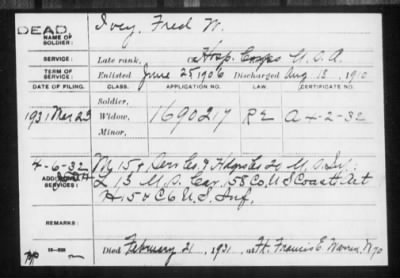 DEAD
NAME OF SOLDIER: Ivey, Fred W.
SERVICE: Late rank, Hosp. Corps U.S.A.
TERM OF SERVICE: Enlisted June 25 1906 Discharged Aug 13, 1910
DATE OF FILING. CLASS. APPLICATION NO. LAW. CERTIFICATE NO.
Soldier,
1931 Mar 23 Widow, 1690217 RE A-4-2-32
Minor,
4-6-32 M 159, Serv Co, & Hdqrs Co 20
ADDITIONAL SERVICES: L 13 U.S. Cav, 158 Co, U.S Coast Art
H, 15 & C 6 U.S. Inf.
REMARKS:
Died February 21, 1931, at Ft. Francis E. Warren, Wyo